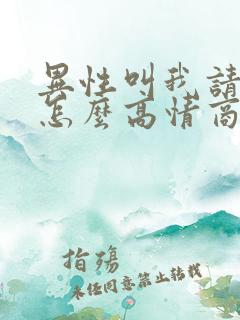 異性叫我請
怎麼高情商
指殤
未任同意禁止转载